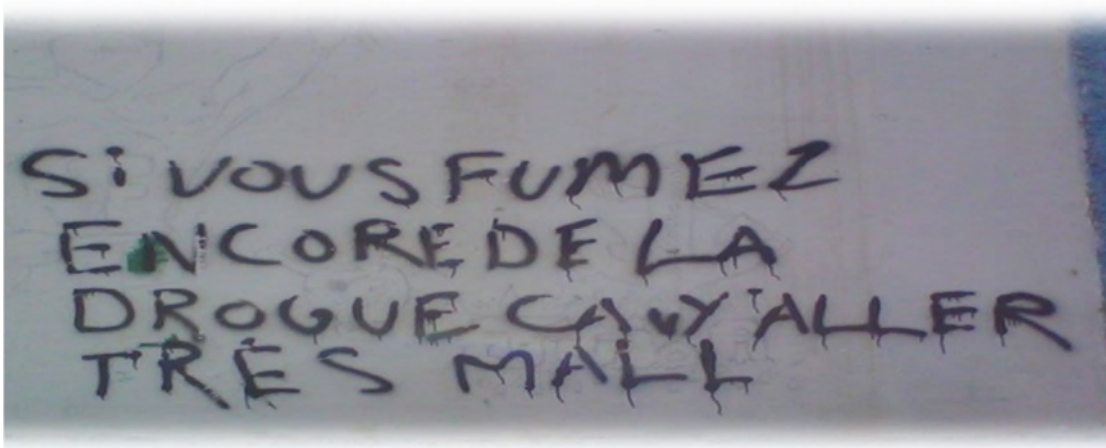 Si VOUS FUMEZ
ENCORE DE LA
DROGUE CA VY ALLER
TRÈS MALL